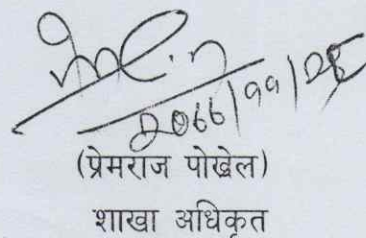 २०६६/११/
(प्रेमराज पोखेल)
शाखा अधिकृत